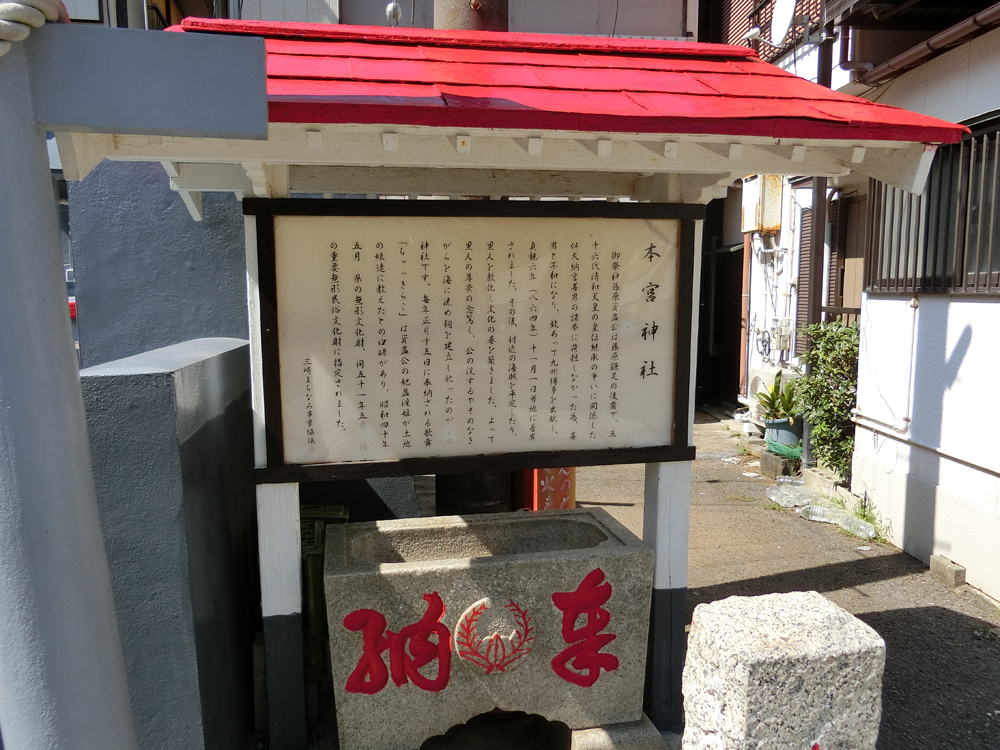 本宮神社
御祭神藤原資盈公は藤原鎌足の後裔で、五
十六代清和天皇の皇位継承の争いに関係した
伴大納言善男の謀挙に荷担しなかった為、善
男と不和になり、敍あって九州博多を出航し、
貞観六年(八六四年)十一月一日当地に着岸
されました。その後、付近の海賊を平定したり、
里人を教化し文化の基を築きました。よって
里人の尊崇の念篤く、公の没するやそのなき
がらを海に沈め祠を建立し祀ったのが
神社です。毎年正月十五日に奉納される歌舞
「ちゃっきらこ」は資盈公の妃盈渡姫が土地
の娘達に教えたとの口碑があり、昭和四十年
五月 県の無形文化財、同五十一年五月 国
の重要無形民俗文化財に指定されました。
三崎まちなみ事業協議
奉納